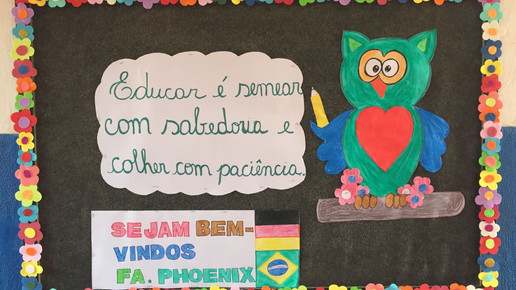 Educar é semear
com sabedoria e
colher com paciência.
SEJAM BEM-
VINDOS
FA. PHOENIX